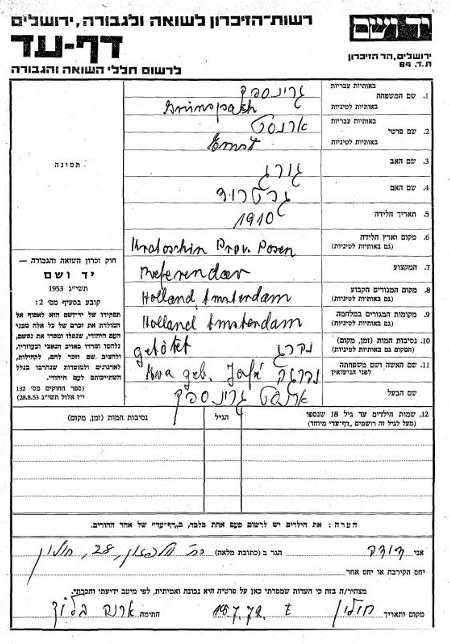 רשות-הזיכרון לשואה ולגבורה, ירושלים
יד ושם
דף-עד
ירושלים, הר הזיכרון
ת.ד. 84
לרשום חללי השואה והגבורה
תמונה
חוק זכרון השואה והגבורה —
יד ושם
תשי"ג 1953
קובע בסעיף מס' 2:
תפקידו של יד-ושם הוא לאסוף אל
המולדת את זכרם של כל אלה מבני
העם היהודי, שנפלו ומסרו את נפשם,
נלחמו ומרדו באויב הנאצי ובעוזריו,
ולהציב שם וזכר להם, לקהילות,
לארגונים ולמוסדות שנחרבו בגלל
השתייכותם לעם היהודי.
ספר החוקים מס' 132
י"ז אלול תשי"ג 28.8.53
1. שם המשפחה
באותיות עבריות
באותיות לטיניות
2. שם פרטי
באותיות עבריות ארנסט
באותיות לטיניות Ernst
3. שם האב גורג
4. שם האם גרטרוד
5. תאריך הלידה 1910
6. מקום וארץ הלידה
(גם באותיות לטיניות) Krotoschin Prov. Posen
7. המקצוע Referendar
8. מקום המגורים הקבוע
(גם באותיות לטיניות) Holland, Amsterdam
9. מקומות המגורים במלחמה
(גם באותיות לטיניות) Holland Amsterdam
10. נסיבות המות (זמן, מקום)
(המקום גם באותיות לטיניות) נהרג getötet
11. שם האשה ושם משפחתה
לפני הנישואין geb. Jafé
שם הבעל
12. שמות הילדים עד גיל 18 שנספו
(מעל לגיל זה רושמים „דף-עד" מיוחד)
הגיל
נסיבות המות (זמן, מקום)
הערה: את הילדים יש לרשום פעם אחת בלבד, ב„דף-עד" של אחד ההורים.
אני הגר ב (כתובת מלאה) 28, חולון
יחס הקירבה או יחס אחר
מצהיר/ה בזה כי העדות שמסרתי כאן על פרטיה היא נכונה ואמיתית, לפי מיטב ידיעתי והכרתי.
מקום ותאריך חולון חתימה